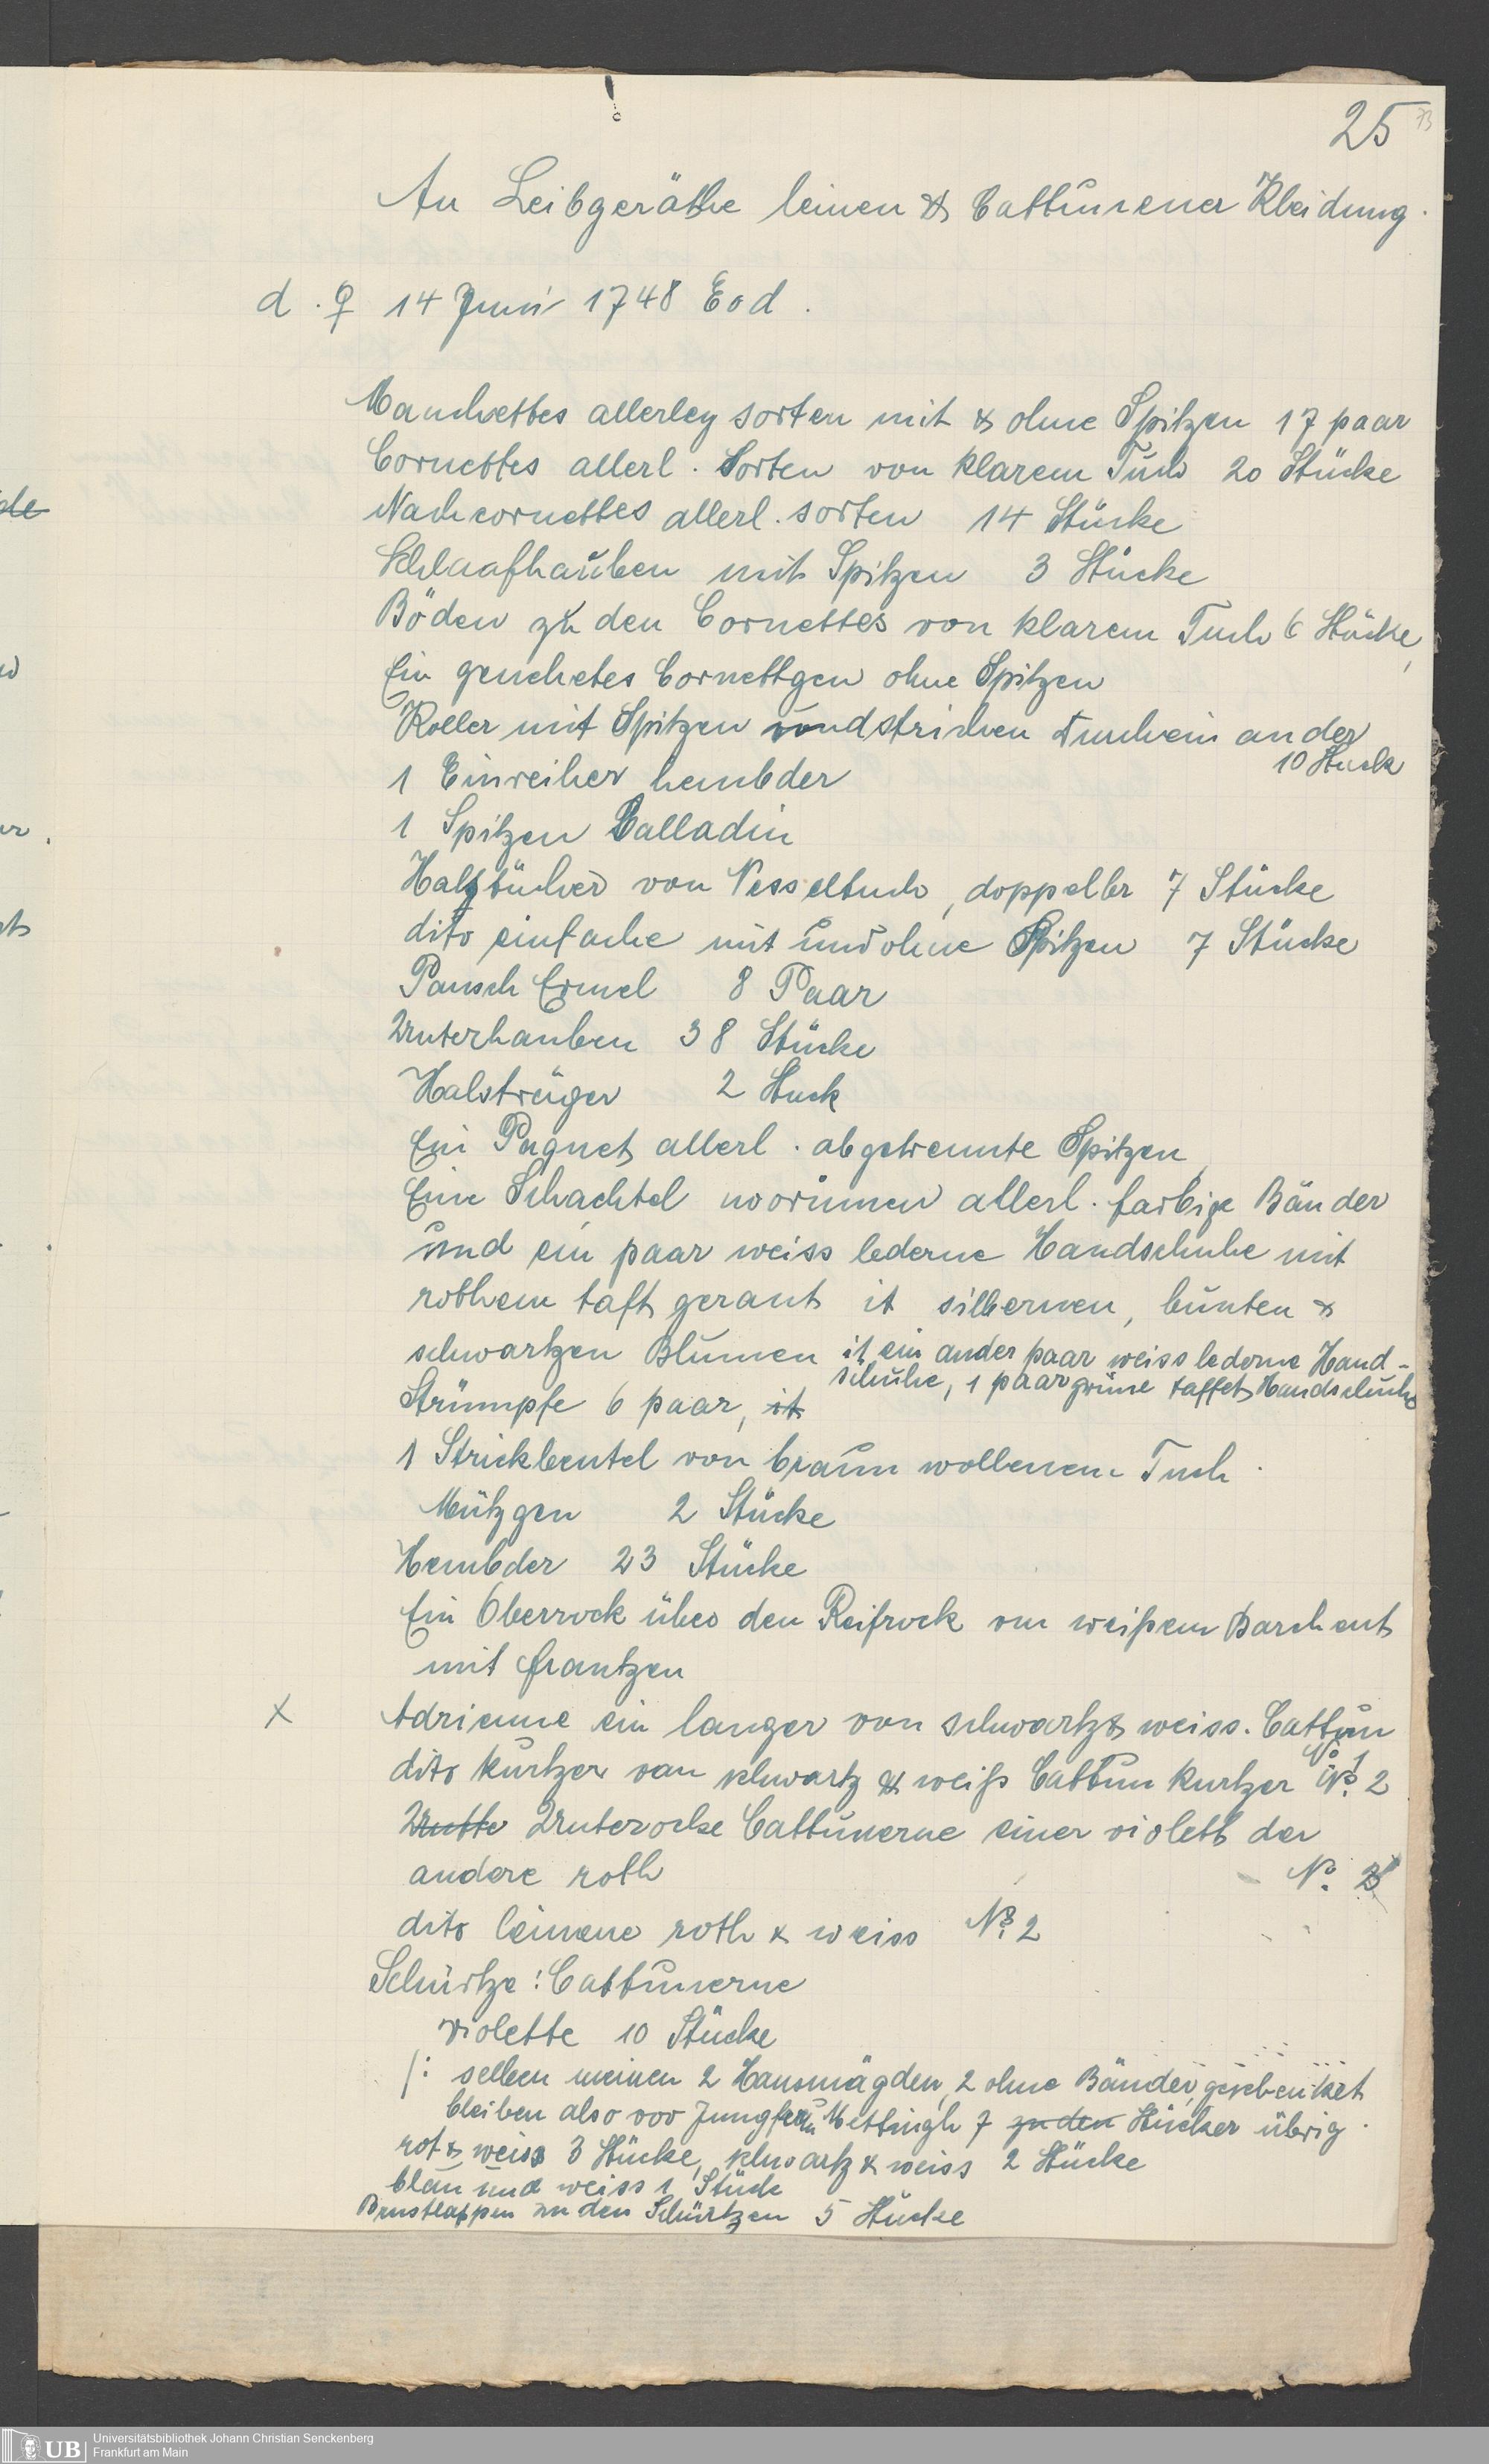 25
73
An Leibgeräthe leinen & Cattunener Kleidung.
d. ♀ 14 Juni 1748 Eod.
Manchettes allerley sorten mit & ohne Spitzen 17 paar
Cornettes allerl. Sorten von klarem Tuch 20 Stücke
Nachcornettes allerl. sorten 14 Stücke
Schlaafhauben mit Spitzen 3 Stücke
Böden zu den Cornettes von klarem Tuch 6 Stücke
Ein genehetes Cornettgen ohne Spitzen
Koller mit Spitzen und strichen durchein ander
10 Stuck
1 Einreiher hembder
1 Spitzen Palladin
Halstücher von Nesseltuch, doppelte 7 Stücke
dito einfache mit und ohne Spitzen 7 Stücke
Pausch Ermel 8 Paar
Unterhauben 38 Stücke
Halsträger 2 Stuck
Ein Paquet allerl. abgetrennte Spitzen
Eine Schachtel woorinnen allerl. farbige Bänder
und ein paar weiss lederne Handschuhe mit
rothem taft gerant it silbernen, bunten &
schwartzen Blumen it ein ander paar weiss lederne Hand-
schuhe, 1 paar grüne taffet Handschuhe
Strümpfe 6 paar, it
1 Strickbeutel von braun wollenem Tuch.
Mützgen 2 Stücke
Hembder 23 Stücke
Ein Oberrock über den Reifrock von weißem Barchent
mit frantzen
x Adrienne ein langer von schwartz weiss. Cattun
No 1
dito kurtzer von schwartz & weiß Cattun kurtzer No. 2
Unterocke Cattunerne einer violett der
andere roth No.
dito leinene roth & weiss No. 2
Schürtze: Cattunerne
violette 10 Stücke
/: selben meinen 2 Hausmägden, 2 ohne Bänder, geschenket
bleiben also vor Jungfern Mettingh 7 zu den Stücker übrig.
rot & weiss 3 Stücke, schwartz & weiss 2 Stücke
blau und weiss 1 Stück
Brustlappen zu den Schürtzen 5 Stücke
UB
Universitätsbibliothek Johann Christian Senckenberg
Frankfurt am Main